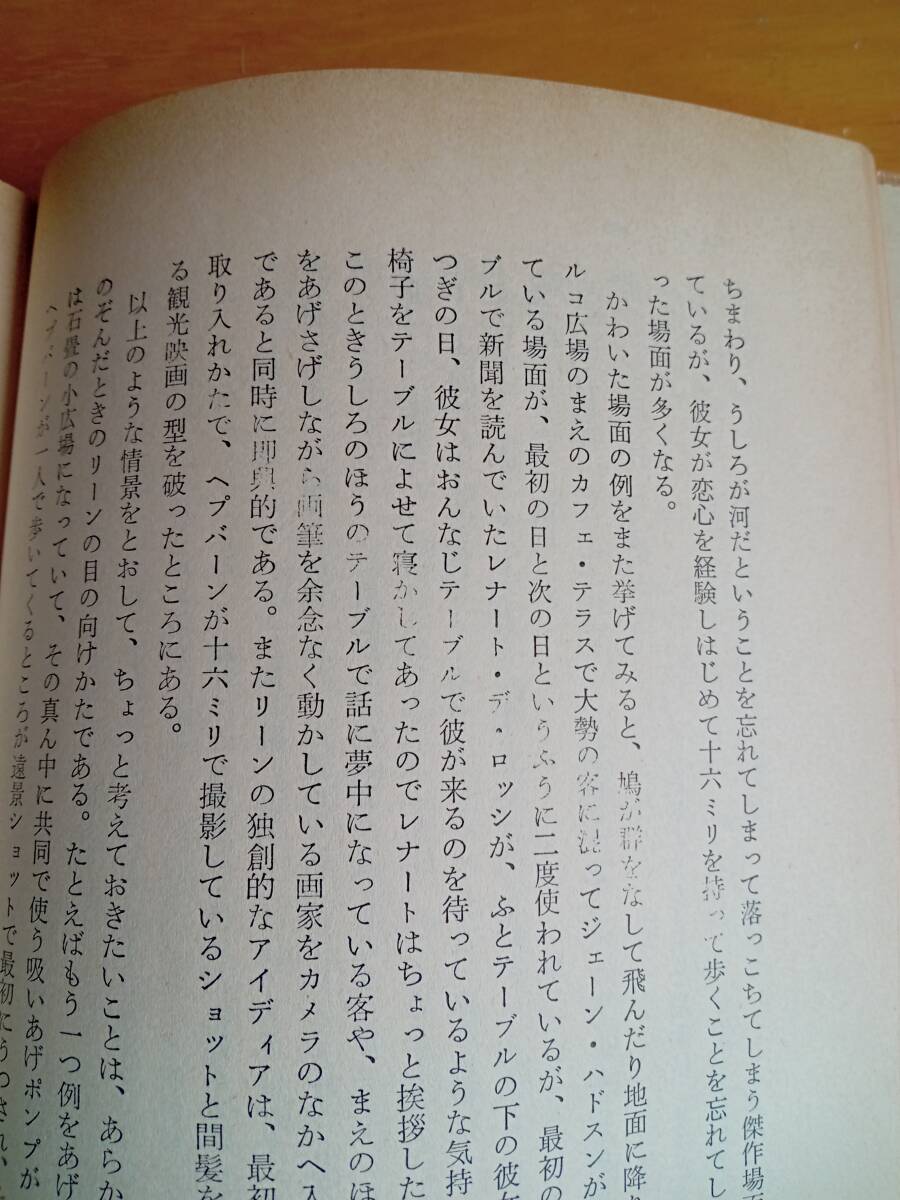 ちまわり、うしろが河だということを忘れてしまって落っこちてしまう傑作場面
ているが、彼女が恋心を経験しはじめて十六ミリを持って歩くことを忘れてし
った場面が多くなる。
かわいた場面の例をまた挙げてみると、鳩が群をなして飛んだり地面に降り
ルコ広場のまえのカフェ・テラスで大勢の客に混ってジェーン・ハドスンが
ている場面が、最初の日と次の日というふうに二度使われているが、最初の
ブルで新聞を読んでいたレナート・デ・ロッシが、ふとテーブルの下の彼女
つぎの日、彼女はおんなじテーブルで彼が来るのを待っているような気持
椅子をテーブルによせて寝かしてあったのでレナートはちょっと挨拶した
このときうしろのほうのテーブルで話に夢中になっている客や、まえのほ
をあげさげしながら画筆を余念なく動かしている画家をカメラのなかへ入
であると同時に即興的である。またリーンの独創的なアイディアは、最初
取り入れかたで、ヘプバーンが十六ミリで撮影しているショットと間髪を
る観光映画の型を破ったところにある。
以上のような情景をとおして、ちょっと考えておきたいことは、あらか
のぞんだときのリーンの目の向けかたである。たとえばもう一つ例をあげ
は石畳の小広場になっていて、その真ん中に共同で使う吸いあげポンプが
ヘプバーンが一人で歩いてくるところが遠景ショットで最初にうつされ、